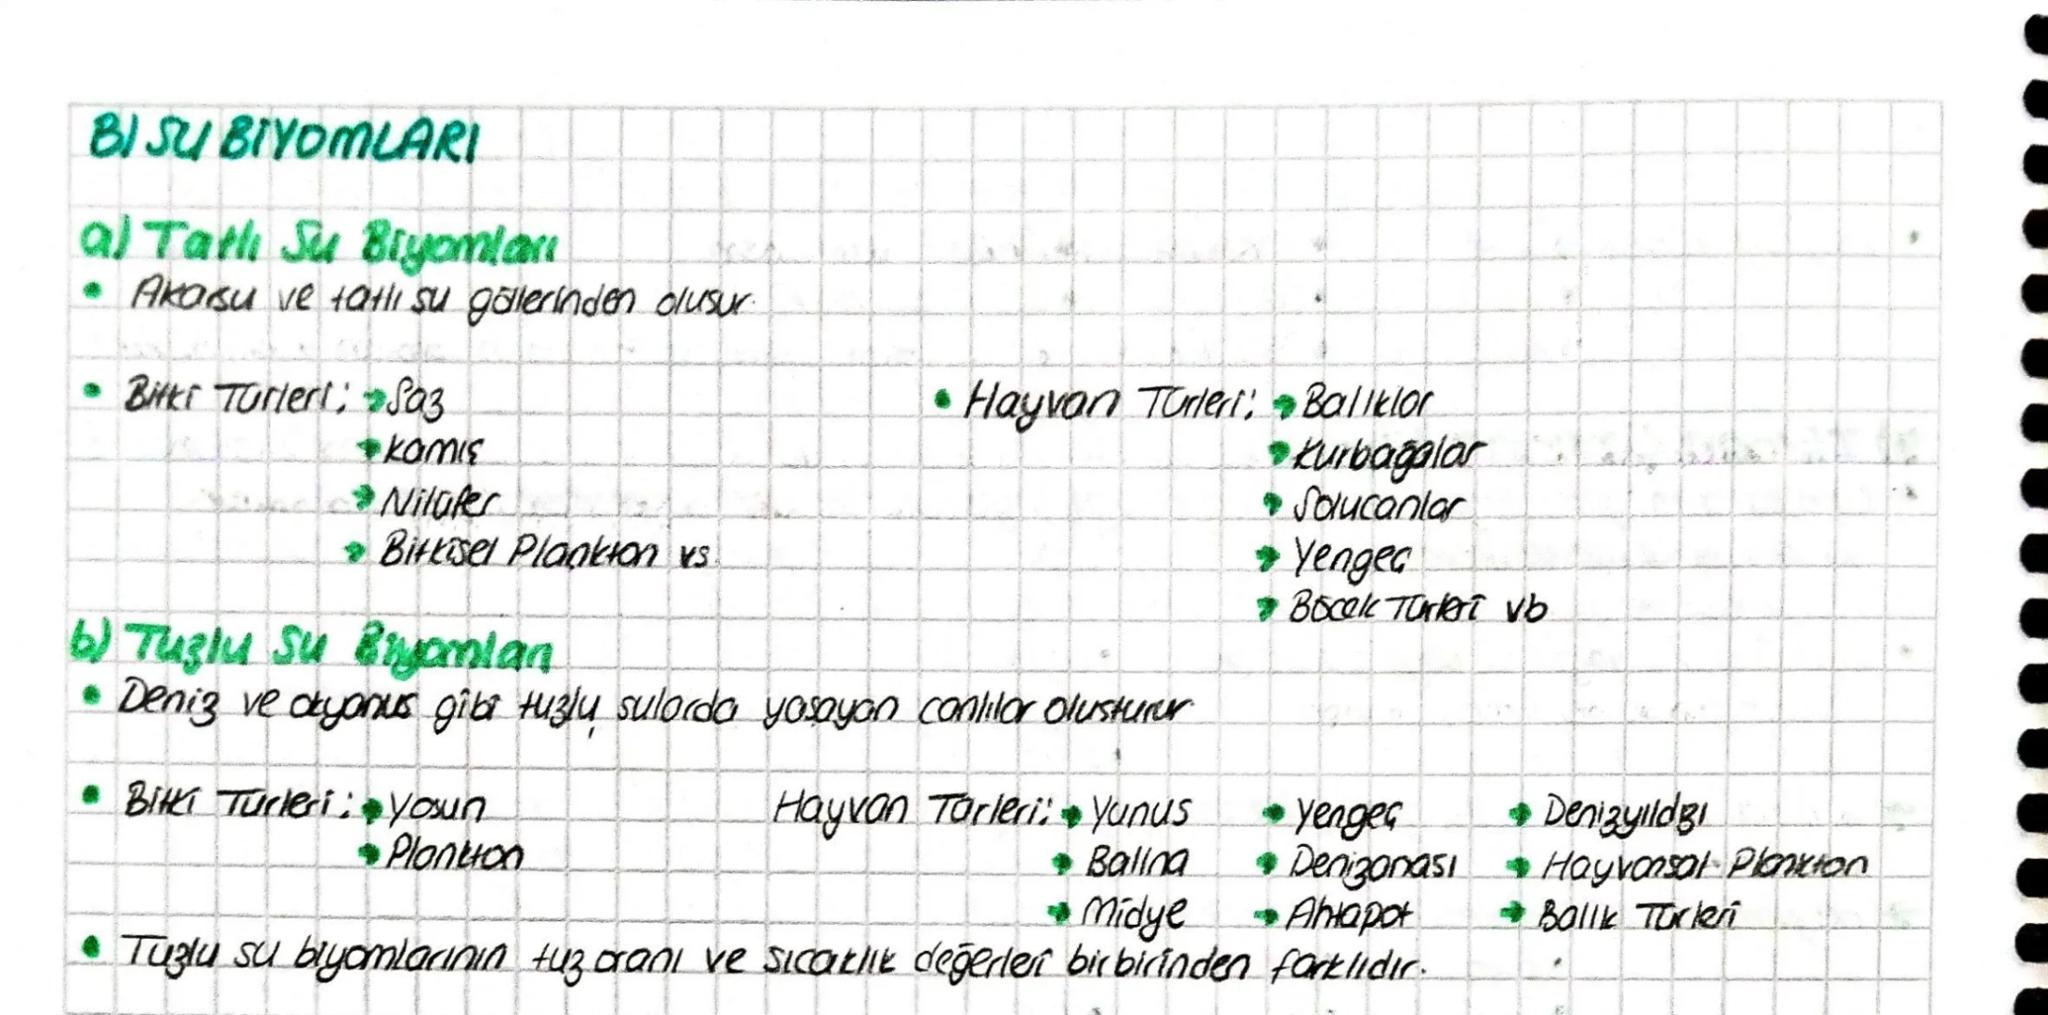 B) SU BİYOMLARI
a) Tatlı Su Biyomları
• Akarsu ve tatlı su göllerinden oluşur.
• Bitki Türleri: → Saz
→ Kamış
→ Nilüfer
→ Bitkisel Plankton vs.
• Hayvan Türleri: → Balıklar
→ Kurbağalar
→ Solucanlar
→ Yengeç
→ Böcek Türleri vb
b) Tuzlu Su Biyomları
• Deniz ve okyanus gibi tuzlu sularda yaşayan canlılar oluşturur.
• Bitki Türleri: → Yosun
→ Plankton
Hayvan Türleri: → Yunus
→ Balina
→ Midye
→ Yengeç
→ Denizanası
→ Ahtapot
→ Denizyıldızı
→ Hayvansal Plankton
→ Balık Türleri
• Tuzlu su biyomlarının tuz oranı ve sıcaklık değerleri birbirinden farklıdır.